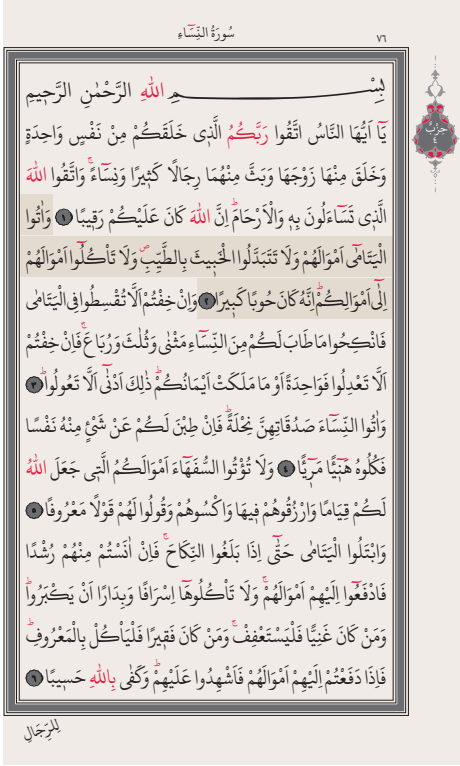 سُورَةُ النِّسَاءِ
٧٦
حزب
٤
بِسْمِ اللهِ الرَّحْمٰنِ الرَّحِيمِ
يَٓا اَيُّهَا النَّاسُ اتَّقُوا رَبَّكُمُ الَّذِى خَلَقَكُمْ مِنْ نَفْسٍ وَاحِدَةٍ
وَخَلَقَ مِنْهَا زَوْجَهَا وَبَثَّ مِنْهُمَا رِجَالًا كَثِيرًا وَنِسَٓاءًۚ وَاتَّقُوا اللهَ
الَّذِى تَسَٓاءَلُونَ بِهِ وَالْاَرْحَامَۜ اِنَّ اللهَ كَانَ عَلَيْكُمْ رَقِيبًا ﴿١﴾ وَاٰتُوا
الْيَتَامٰٓى اَمْوَالَهُمْ وَلَا تَتَبَدَّلُوا الْخَبِيثَ بِالطَّيِّبِۖ وَلَا تَأْكُلُٓوا اَمْوَالَهُمْ
اِلٰٓى اَمْوَالِكُمْۜ اِنَّهُ كَانَ حُوبًا كَبِيرًا ﴿٢﴾ وَاِنْ خِفْتُمْ اَلَّا تُقْسِطُوا فِى الْيَتَامٰى
فَانْكِحُوا مَا طَابَ لَكُمْ مِنَ النِّسَٓاءِ مَثْنٰى وَثُلٰثَ وَرُبَاعَۚ فَاِنْ خِفْتُمْ
اَلَّا تَعْدِلُوا فَوَاحِدَةً اَوْ مَا مَلَكَتْ اَيْمَانُكُمْۜ ذٰلِكَ اَدْنٰٓى اَلَّا تَعُولُواۜ ﴿٣﴾
وَاٰتُوا النِّسَٓاءَ صَدُقَاتِهِنَّ نِحْلَةًۜ فَاِنْ طِبْنَ لَكُمْ عَنْ شَیْئٍ مِنْهُ نَفْسًا
فَكُلُوهُ هَنِٓئًا مَرِٓئًا ﴿٤﴾ وَلَا تُؤْتُوا السُّفَهَٓاءَ اَمْوَالَكُمُ الَّتِى جَعَلَ اللهُ
لَكُمْ قِيَامًا وَارْزُقُوهُمْ فِيهَا وَاكْسُوهُمْ وَقُولُوا لَهُمْ قَوْلًا مَعْرُوفًا ﴿٥﴾
وَابْتَلُوا الْيَتَامٰى حَتّٰٓى اِذَا بَلَغُوا النِّكَاحَۚ فَاِنْ اٰنَسْتُمْ مِنْهُمْ رُشْدًا
فَادْفَعُٓوا اِلَيْهِمْ اَمْوَالَهُمْۚ وَلَا تَأْكُلُوهَٓا اِسْرَافًا وَبِدَارًا اَنْ يَكْبَرُواۜ
وَمَنْ كَانَ غَنِيًّا فَلْيَسْتَعْفِفْۚ وَمَنْ كَانَ فَقِيرًا فَلْيَأْكُلْ بِالْمَعْرُوفِۜ
فَاِذَا دَفَعْتُمْ اِلَيْهِمْ اَمْوَالَهُمْ فَاَشْهِدُوا عَلَيْهِمْۜ وَكَفٰى بِاللهِ حَسِيبًا ﴿٦﴾
لِلرِّجَالِ